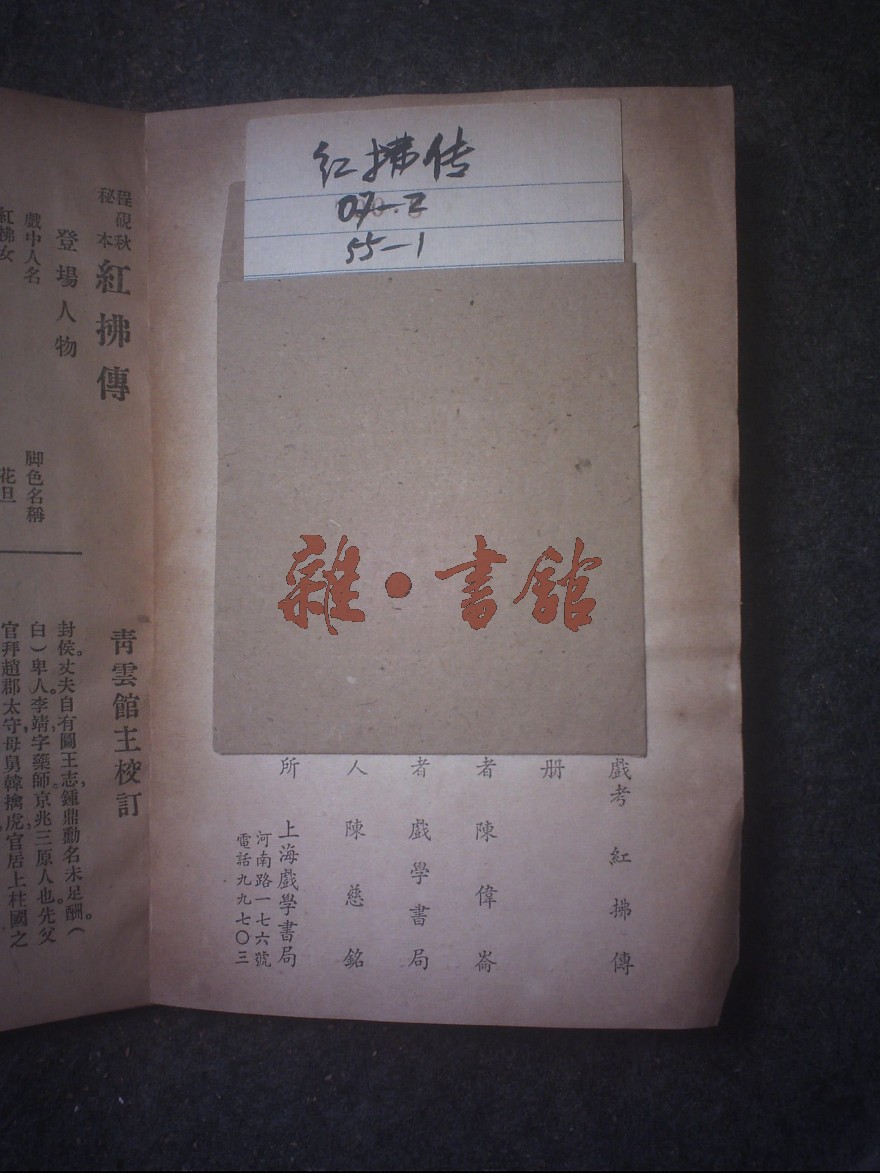 红拂传
55-1
雜·書舘
戲考 紅拂傳
册
者 陳偉崙
者 戲學書局
人 陳慈銘
所 上海戲學書局
河南路一七六號
電話九九七〇三
程硯秋秘本 紅拂傳
青雲館主校訂
登場人物
戲中人名 脚色名稱
紅拂女 花旦
封侯。丈夫自有圖王志,鍾鼎勳名未足酬。(
白)卑人李靖,字藥師,京兆三原人也。先父
官拜趙郡太守,母舅韓擒虎官居上柱國之